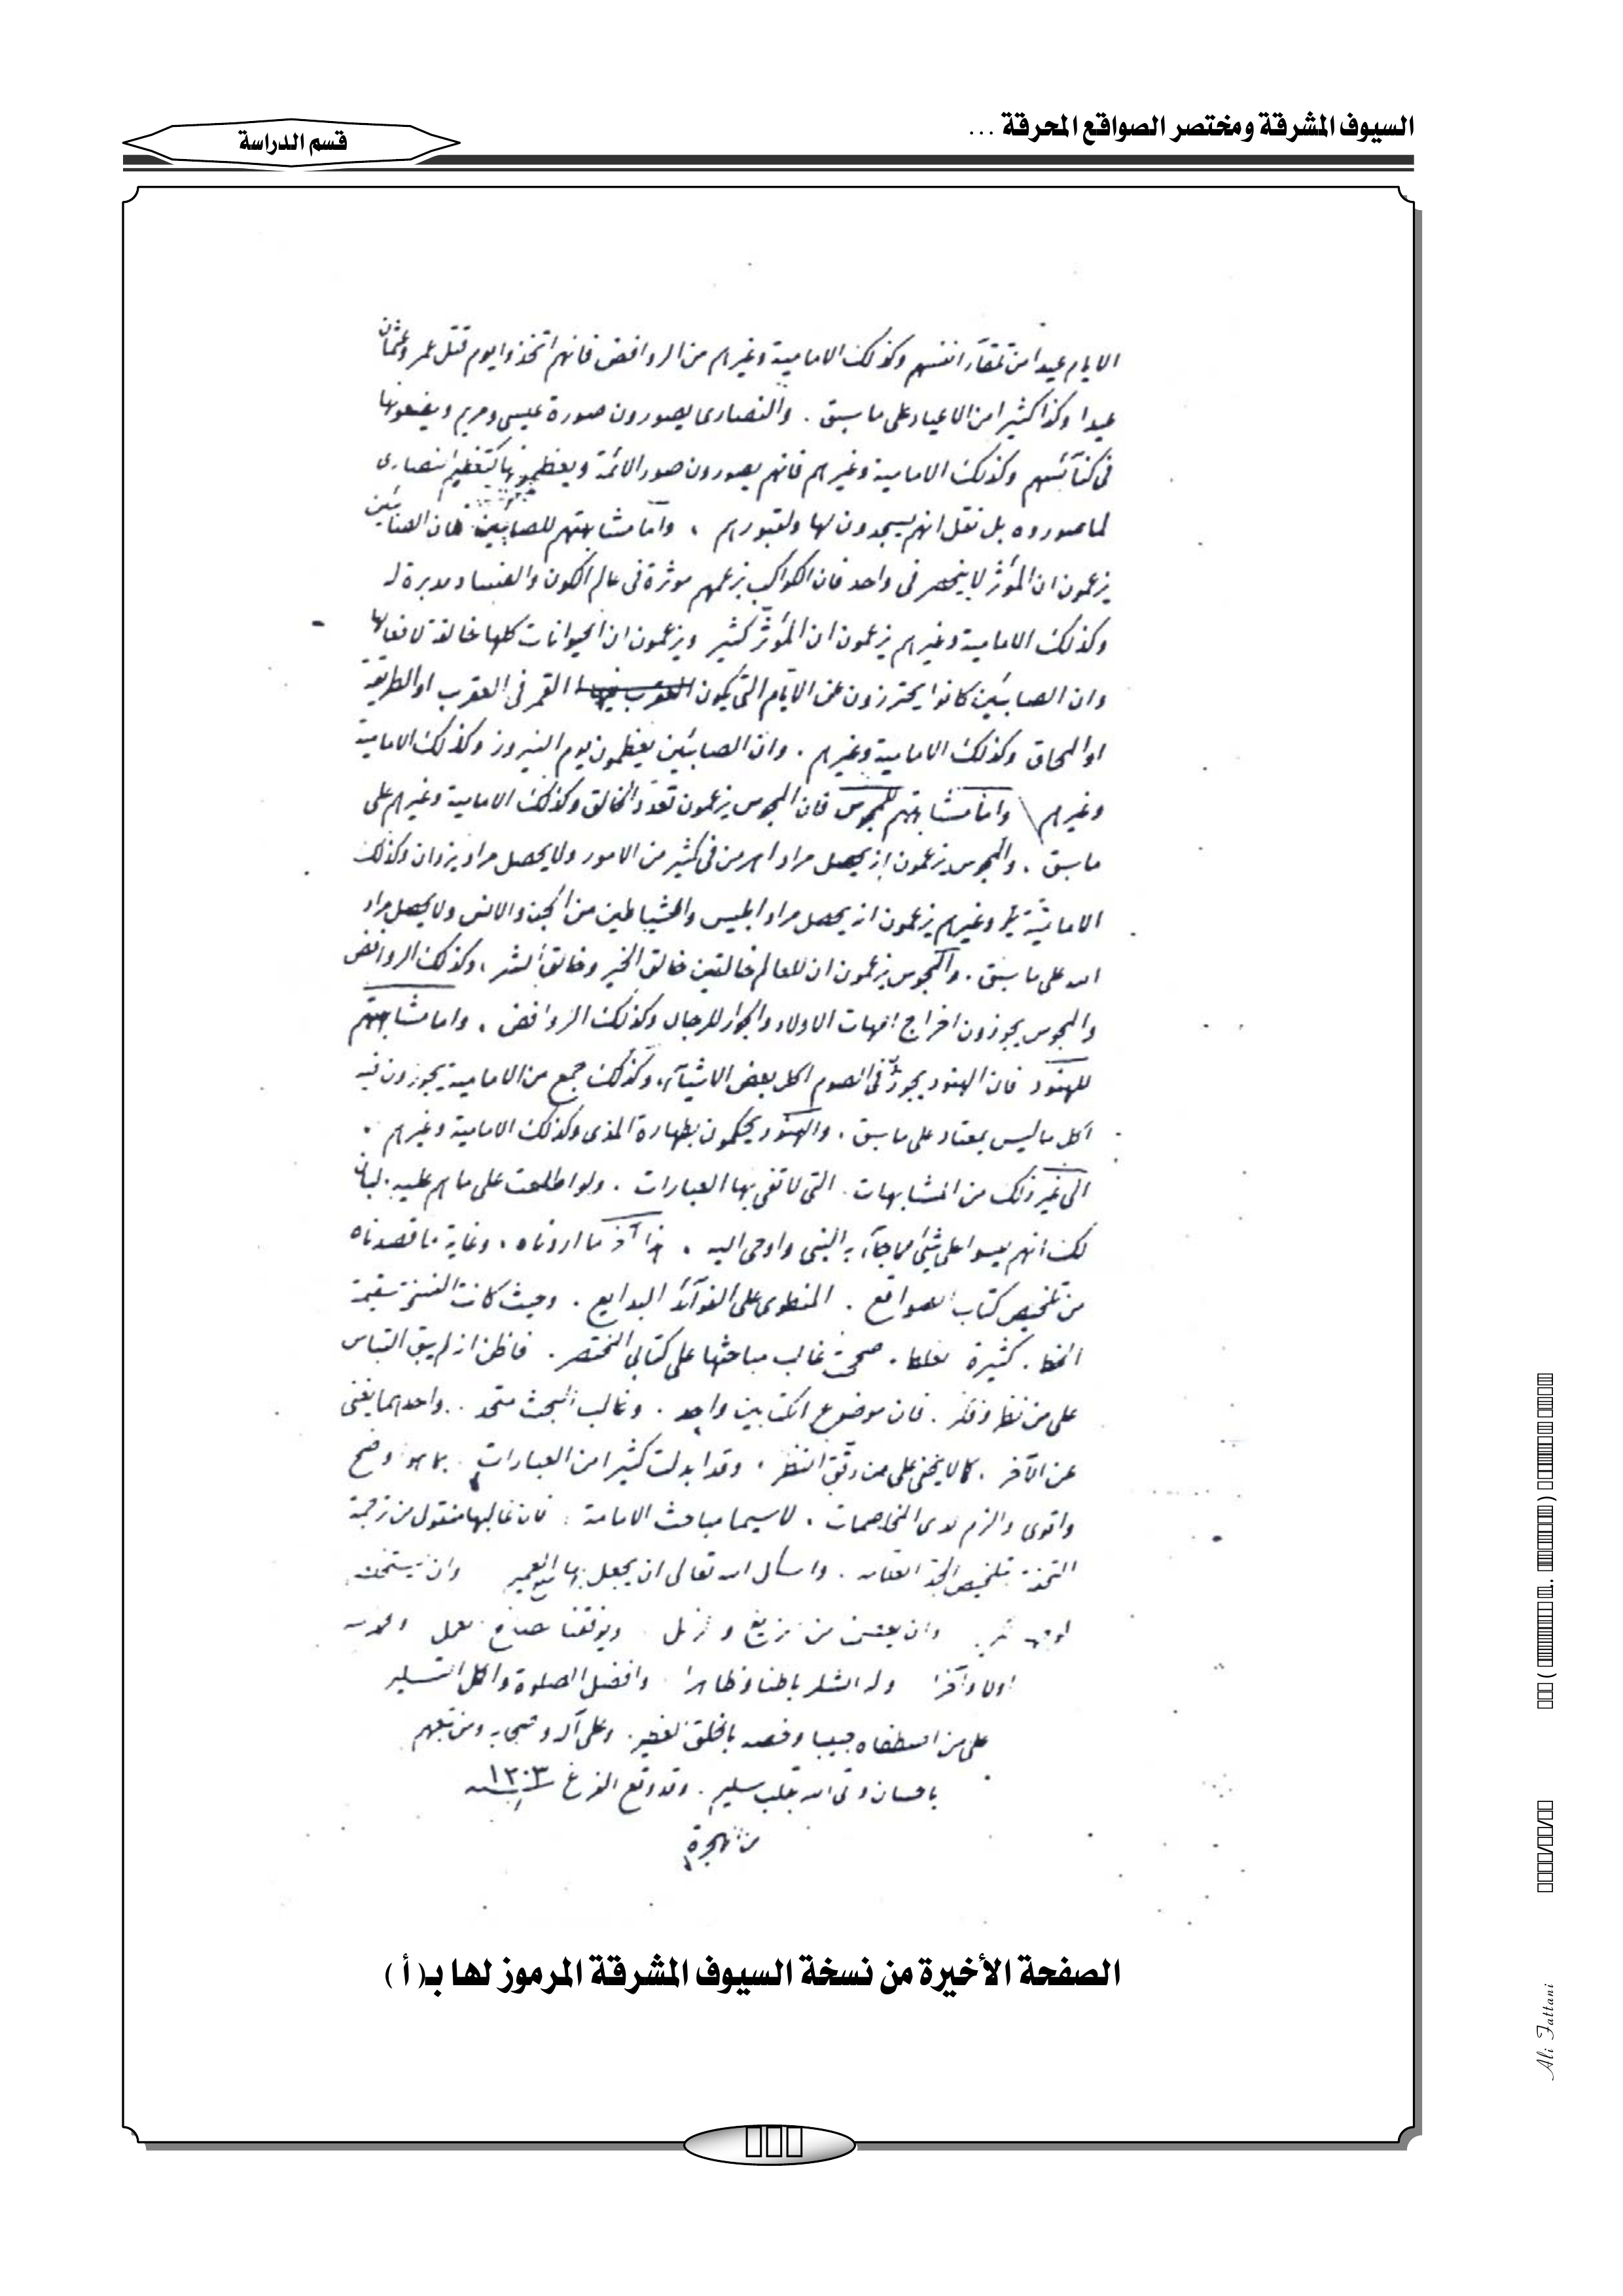 السيوف المشرقة ومختصر الصواقع المحرقة ...
قسم الدراسة
الايام عيدا من تلقآء انفسهم وكذلك الامامية وغيرهم من الروافض فانهم اتخذوا يوم قتل عمر وعثمان
عيدا وكذا كثيرا من الاعياد على ما سبق . والنصارى يصورون صورة عيسى ومريم ويضعونها
فى كنآئسهم وكذلك الامامية وغيرهم فانهم يصورون صور الائمة ويعظمونها كتعظيم النصارى
لما صوروه بل نقل انهم يسجدون لها ولقبورهم ، واما مشابهتهم للصابئين فان الصابئين
يزعمون ان المؤثر لا ينحصر فى واحد فان الكواكب بزعمهم موثرة فى عالم الكون والفساد ومدبرة له
وكذلك الامامية وغيرهم يزعمون ان المؤثر كثير ويزعمون ان الحيوانات كلها خالقة لافعالها
وان الصابئين كانوا يحترزون عن الايام التى يكون القمر فى العقرب او الطريقة
او المحاق وكذلك الامامية وغيرهم . وان الصابئين يعظمون يوم النيروز وكذلك الامامية
وغيرهم واما مشابهتهم للمجوس فان المجوس يزعمون تعدد الخالق وكذلك الامامية وغيرهم على
ما سبق . والمجوس يزعمون انه يحصل مراد اهرمن فى كثير من الامور ولا يحصل مراد يزدان وكذلك
الامامية وغيرهم يزعمون انه يحصل مراد ابليس والشياطين من الجن والانس ولا يحصل مراد
الله على ما سبق . والمجوس يزعمون ان للعالم خالقين خالق الخير وخالق الشر ، وكذلك الروافض
والمجوس يجوزون اخراج امهات الاولاد والجوار للرجال وكذلك الروافض . واما مشابهتهم
للهنود فان الهنود يجوز فى الصوم اكل بعض الاشيآء ، وكذلك جمع من الامامية يجوزون فيه
اكل ما ليس بمعتاد على ما سبق . والهنود يحكمون بطهارة المذى وكذلك الامامية وغيرهم .
الى غير ذلك من المشابهات . التى لا تفى بها العبارات . ولو اطلعت على ما هم عليه . لبان
لك انهم ليسوا على شئ مما جآء به النبى واوحى اليه . هذا آخر ما اردناه ، وغاية ما قصدناه
من تلخيص كتاب الصواقع . المنطوى على الفوآئد البدايع . وحيث كانت النسخة سقيمة
الخط . كثيرة الغلط . صححت غالب مباحثها على كتابى المختصر . فاظن انه لم يبق التباس
على من نظر وفكر . فان موضوع الكتابين واحد . وغالب البحث متحد . واحدهما يغنى
عن الآخر . كما لا يخفى على من دقق النظر . وقد ابدلت كثيرا من العبارات . بما هو اوضح
واقوى والزم لدى المخاصمات . لاسيما مباحث الامامة . فان غالبها منقول من ترجمة
التحفة بتلخيص الجد . واسأل الله تعالى ان يجعل بها النفع العميم وان
وان يعصمنا من زيغ و زلل ويوفقنا لصالح العمل والحمد لله
اولا وآخرا وله الشكر باطنا وظاهرا وافضل الصلوة واكمل التسليم
على من اصطفاه حبيبا وخصه بالخلق العظيم . وعلى آله وصحبه ومن تبعهم
باحسان وقى الله بقلب سليم . وقد وقع الفراغ سنة ١٣٠٣
من الهجرة
الصفحة الأخيرة من نسخة السيوف المشرقة المرموز لها بـ( أ )
Ali Fattani